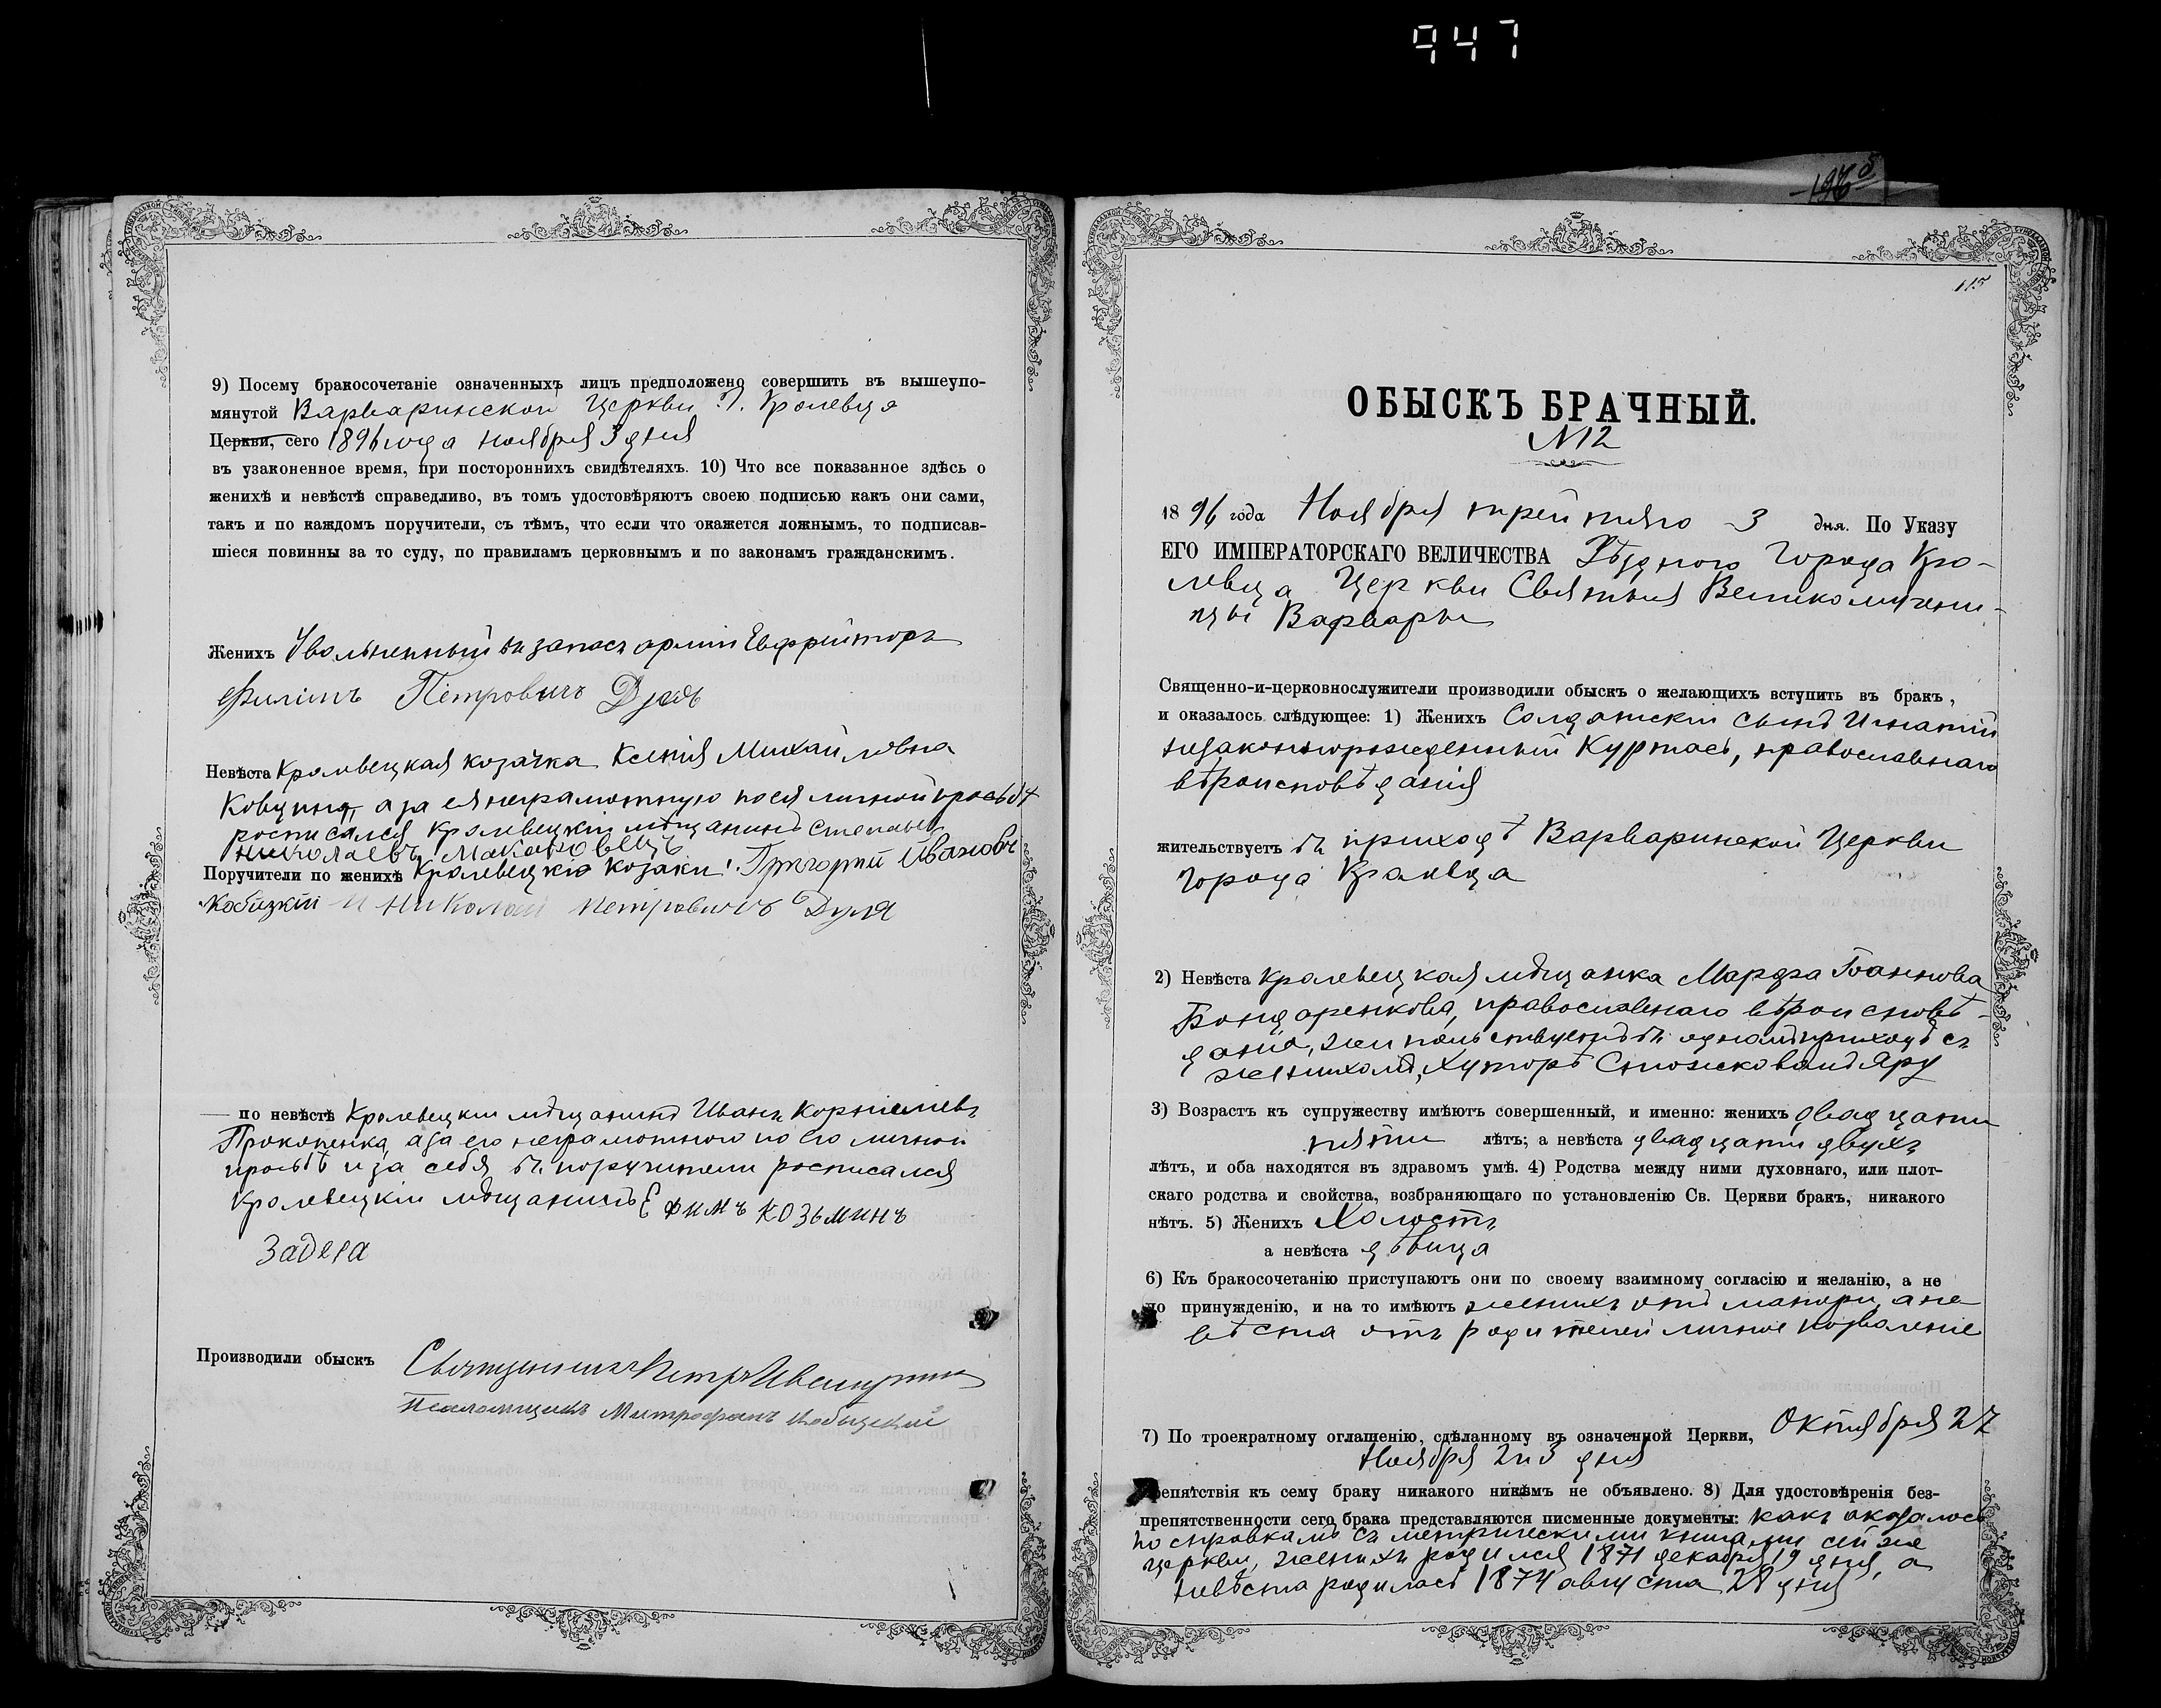 947
115
9) Посему бракосочетаніе означенныхъ лицъ предположено совершить въ вышеупо-
мянутой Варваринской Церкви г. Кролевца
Церкви, сего 1896 года Ноября 3 дня
въ узаконенное время, при постороннихъ свидѣтеляхъ. 10) Что все показанное здѣсь о
женихѣ и невѣстѣ справедливо, въ томъ удостовѣряютъ своею подписью какъ они сами,
такъ и по каждомъ поручители, съ тѣмъ, что если что окажется ложнымъ, то подписав-
шіеся повинны за то суду, по правиламъ церковнымъ и по законамъ гражданскимъ.
Женихъ Уволенный въ запасъ арміи Ефрейторъ
Филіпъ Петровичъ
Невѣста Кролевецкая козачка Ксенія Михайловна
а за ея неграмотную по ея личной просьбѣ
росписался Кролевецкій мѣщанинъ Степанъ
Николаевъ Макаровецъ
Поручители по женихѣ Кролевецкіе козаки: Григорий Ивановъ
Кобизкій и Николай Петровичъ Дуля
по невѣстѣ Кролевецкій мѣщанинъ Иванъ Корнилиевъ
Прокопенка, а за его неграмотного по его личной
просьбѣ и за себя въ поручители росписался
Кролевецкій мѣщанинъ Ефимъ Козьминъ
Задега
Производили обыскъ Священникъ Петръ
Псаломщикъ Митрофанъ Кобыцкій
ОБЫСКЪ БРАЧНЫЙ.
N12
1896 года Ноября третьяго 3 дня. По Указу
ЕГО ИМПЕРАТОРСКАГО ВЕЛИЧЕСТВА Уѣзднаго Города Кро-
левца Церкви Святыя Великомучени-
цы Варвары
Священно-и-церковнослужители производили обыскъ о желающихъ вступить въ бракъ,
и оказалось слѣдующее: 1) Женихъ Солдатскій сынъ Игнатій
незаконнорожденный Куртасъ, православнаго
вѣроисповѣданія
жительствуетъ въ приходѣ Варваринской Церкви
Города Кролевца
2) Невѣста Кролевецкая мѣщанка Марфа Іоаннова
Бондаренкова, православнаго вѣроисповѣ-
данія, жительствуетъ въ одномъ приходѣ съ
женихомъ, Хуторѣ Яру
3) Возрастъ къ супружеству имѣютъ совершенный, и именно: женихъ двадцати
пяти лѣтъ; а невѣста двадцати двухъ
лѣтъ, и оба находятся въ здравомъ умѣ. 4) Родства между ними духовнаго, или плот-
скаго родства и свойства, возбраняющаго по установленію Св. Церкви бракъ, никакого
нѣтъ. 5) Женихъ Холостъ
а невѣста дѣвица
6) Къ бракосочетанію приступаютъ они по своему взаимному согласію и желанію, а не
по принужденію, и на то имѣютъ женихъ отъ матери, а не-
вѣста отъ родителей личное позволеніе
7) По троекратному оглашенію, сдѣланному въ означенной Церкви, Октября 27
Ноября 2 и 3 дня
препятствія къ сему браку никакого никѣмъ не объявлено. 8) Для удостовѣренія без-
препятственности сего брака представляются писменные документы: какъ оказалось
по справкамъ съ метрическими книгами сей же
церкви, женихъ родился 1871 декабря 19 дня, а
невѣста родилась 1874 августа 28 дня